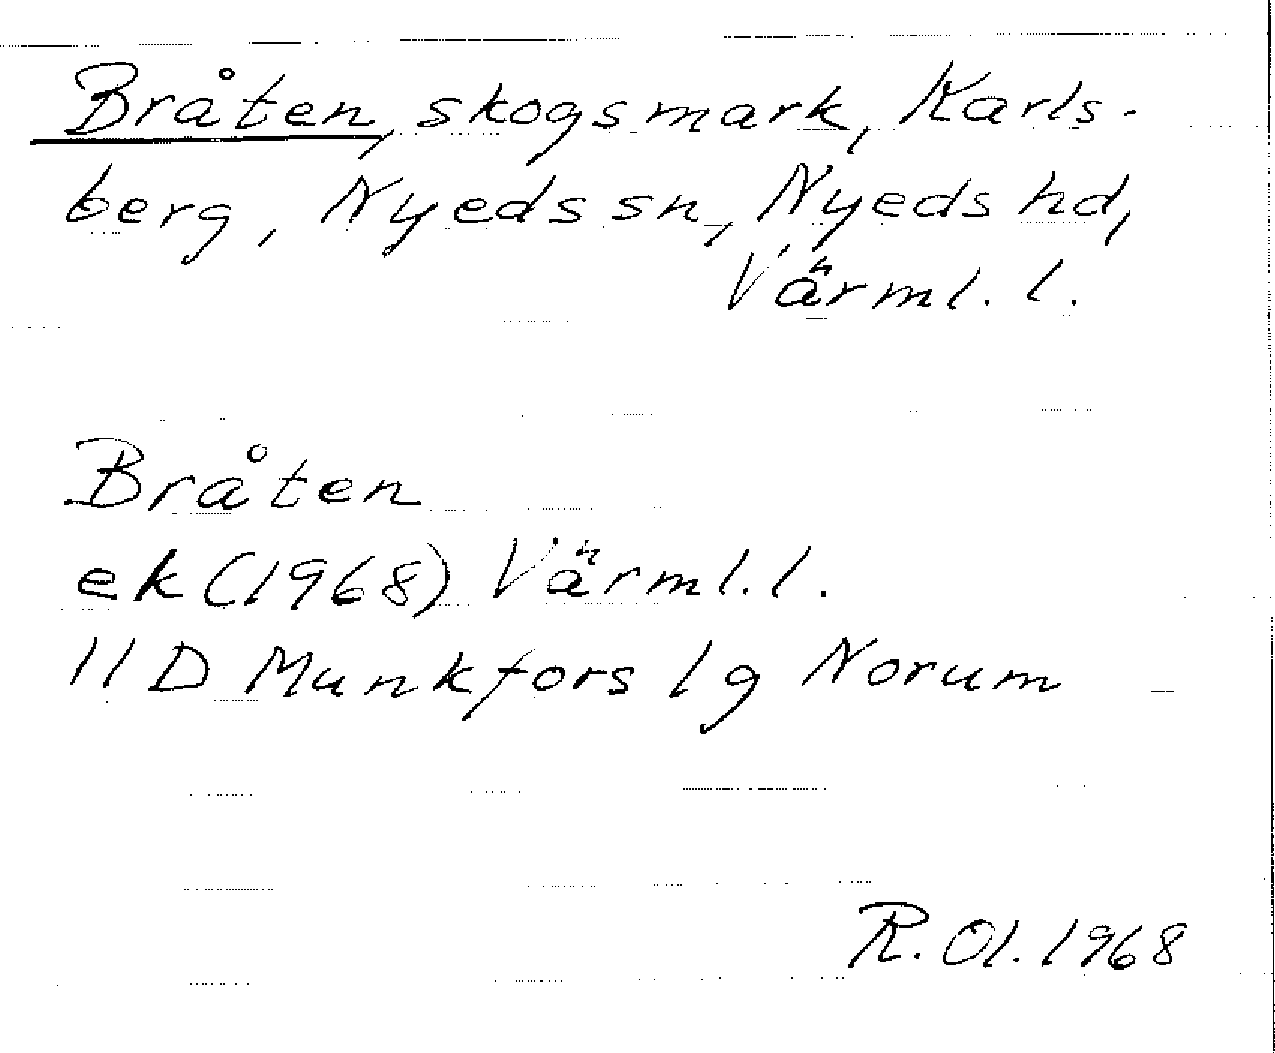 Bråten, skogsmark, Karls-
berg, Nyeds sn, Nyeds hd,
Värml. l.
Bråten
ek (1968) Värml. l.
11 D Munkfors 1 g Norum
R. Ol. 1968